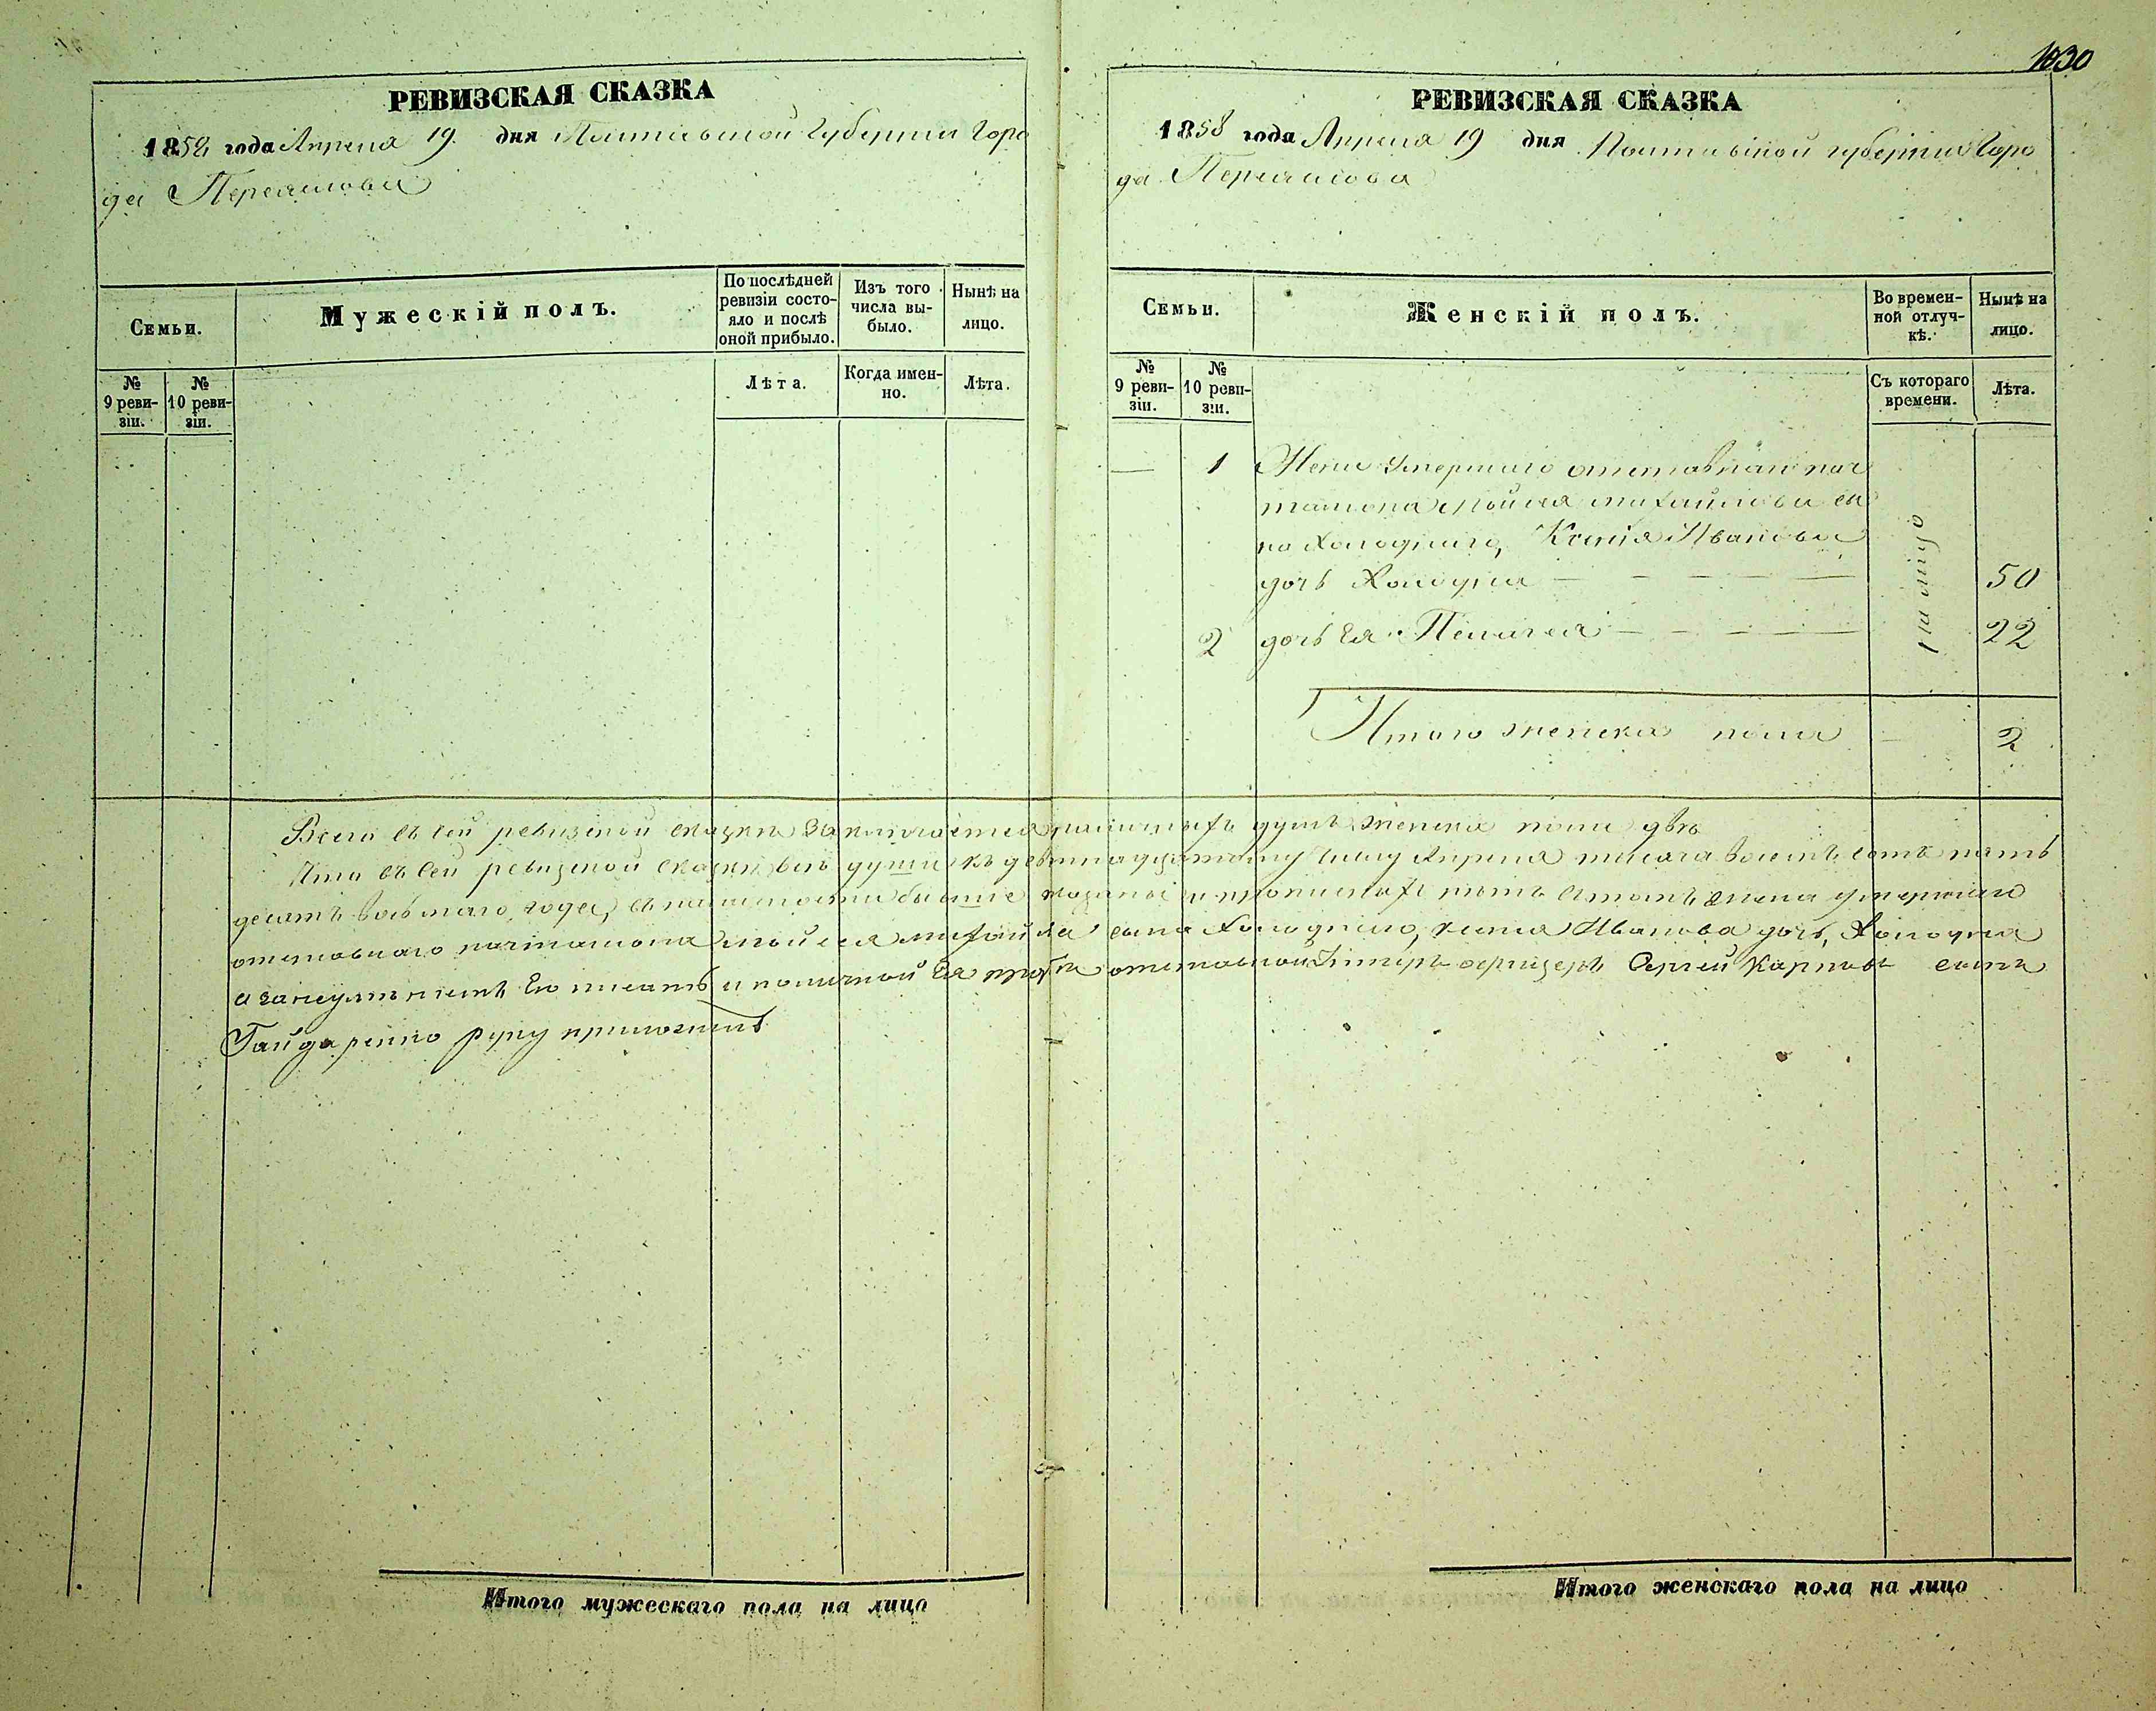 1030
РЕВИЗСКАЯ СКАЗКА
1858 года Апреля 19 дня Полтавской Губернии Горо
да Переяслова
Семьи.
Мужескій полъ.
По послѣдней ревизіи состояло и послѣ оной прибыло.
Изъ того числа выбыло.
Нынѣ на лицо.
№ 9 ревизіи.
№ 10 ревизіи.
Лѣта.
Когда именно.
Лѣта.
РЕВИЗСКАЯ СКАЗКА
1858 года Апреля 19 дня Полтавской губернии Горо
да Переяслова
Семьи.
Женскій полъ.
Во временной отлучкѣ.
Нынѣ на лицо.
№ 9 ревизіи.
№ 10 ревизіи.
Съ котораго времени.
Лѣта.
— 1 Жена Умершаго отставнаго поч
талиона Мойсея Михайлова сы
на Холоднаго, Ксенія Иванова
дочь Холодна — — — — 50
2 дочь Ея Пелагея — — — — 22
на лицо
Итого женска пола — 2
Всего въ сей ревизской сказки заключается наличныхъ душъ женска пола двѣ
Что въ сей ревизской сказки всѣ души къ девятнадцатому числу Апреля тысяча восемъ сотъ пять
десятъ восьмаго года, въ наличности бывшие показаны и прописныхъ нетъ въ томъ жена умершаго
отставнаго почталиона Мойсея Михайла сына Холоднаго, Ксения Иванова дочь, Холодна
а за неуменіемъ Ею писать и поличной Ея прозбе отставной Унтеръ офрицеръ Сергей Карповъ сынъ
Гайдаренко руку приложилъ
Итого мужескаго пола на лицо
Итого женскаго пола на лицо